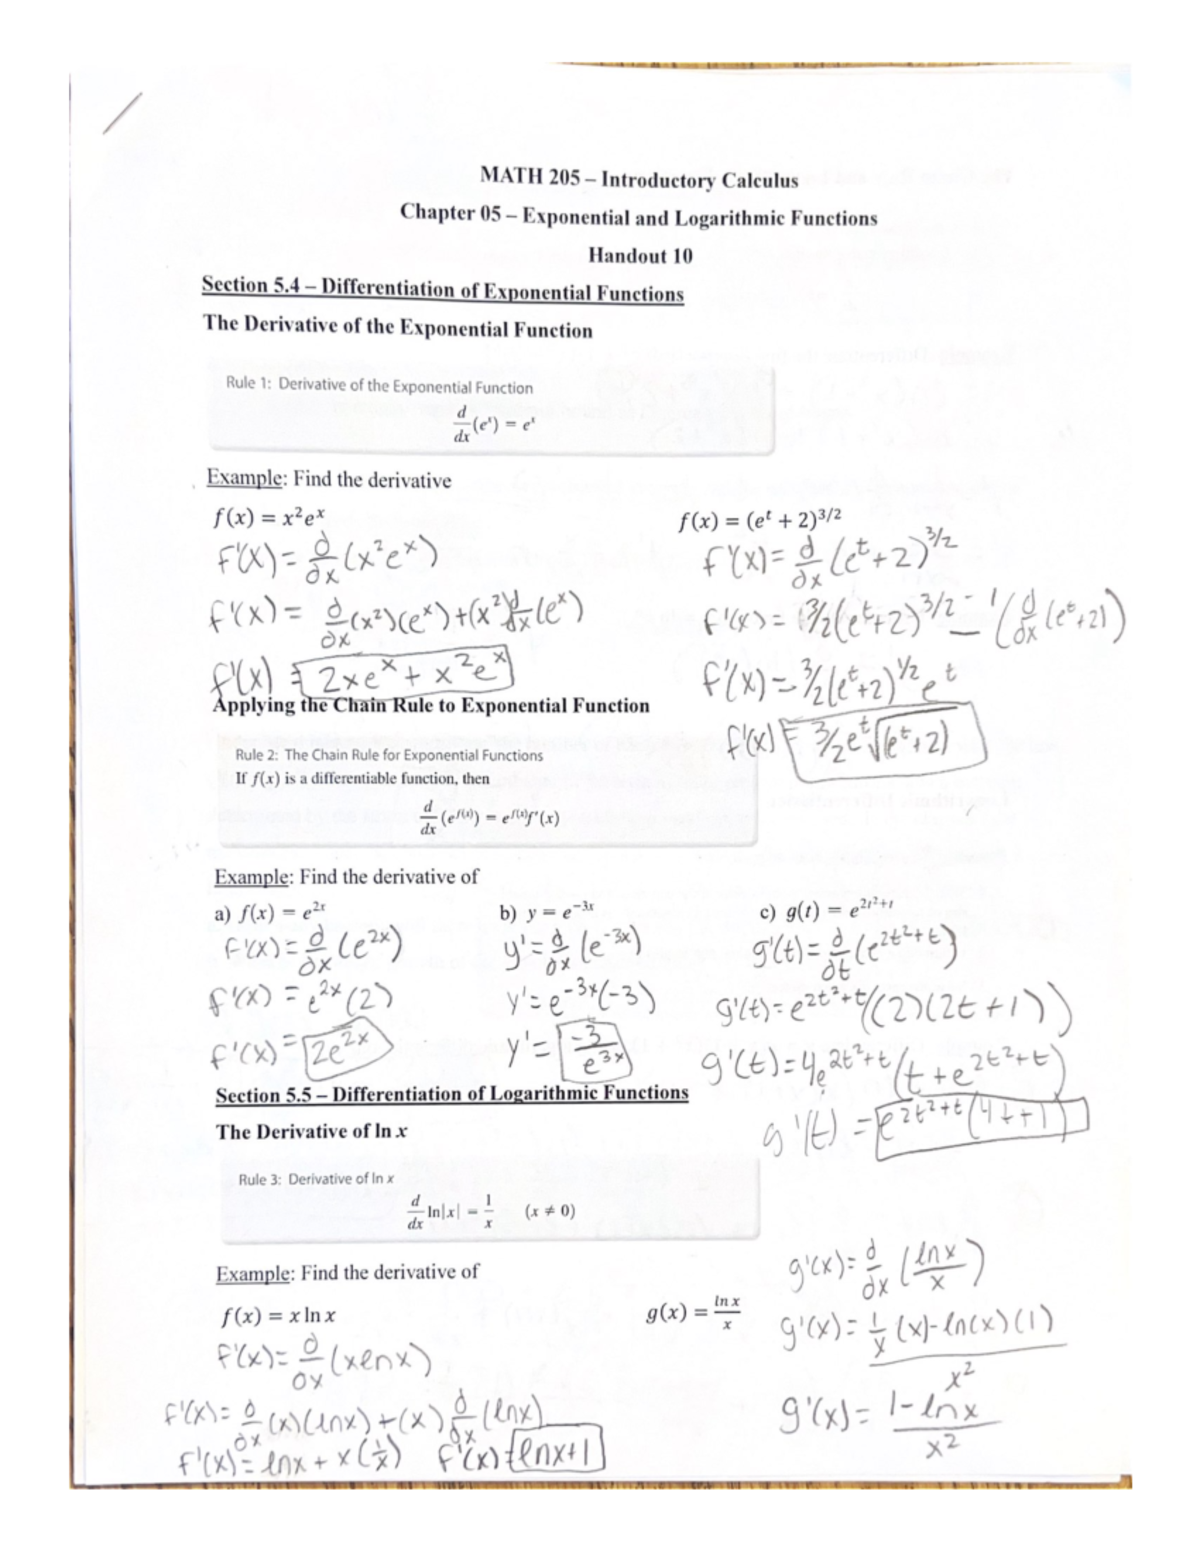 MATH 205 – Introductory Calculus
Chapter 05 – Exponential and Logarithmic Functions
Handout 10
Section 5.4 – Differentiation of Exponential Functions
The Derivative of the Exponential Function
Rule 1: Derivative of the Exponential Function
d/dx (e^x) = e^x
Example: Find the derivative
f(x) = x²e^x
f'(x) = d/dx (x²e^x)
f'(x) = d/dx (x²)(e^x) + (x²) d/dx (e^x)
f'(x) = 2xe^x + x²e^x
f(x) = (e^t + 2)^3/2
f'(x) = d/dx (e^t + 2)^3/2
f'(x) = (3/2(e^t + 2)^3/2 - 1 (d/dx (e^t + 2))
f'(x) = 3/2 (e^t + 2)^1/2 e^t
f'(x) = 3/2 e^t √(e^t + 2)
Applying the Chain Rule to Exponential Function
Rule 2: The Chain Rule for Exponential Functions
If f(x) is a differentiable function, then
d/dx (e^f(x)) = e^f(x) f'(x)
Example: Find the derivative of
a) f(x) = e^2x
f'(x) = d/dx (e^2x)
f'(x) = e^2x (2)
f'(x) = 2e^2x
b) y = e^-3x
y' = d/dx (e^-3x)
y' = e^-3x (-3)
y' = -3/e^3x
c) g(t) = e^2t²+t
g'(t) = d/dt (e^2t²+t)
g'(t) = e^2t²+t ((2)(2t + 1))
g'(t) = 4e^2t²+t (t + e^2t²+t)
g'(t) = e^2t²+t (4t + 1)
Section 5.5 – Differentiation of Logarithmic Functions
The Derivative of ln x
Rule 3: Derivative of ln x
d/dx ln|x| = 1/x (x ≠ 0)
Example: Find the derivative of
f(x) = x ln x
f'(x) = d/dx (x ln x)
f'(x) = d/dx (x)(ln x) + (x) d/dx (ln x)
f'(x) = ln x + x (1/x) f'(x) = ln x + 1
g(x) = ln x/x
g'(x) = d/dx (ln x/x)
g'(x) = 1/x (x) - ln(x)(1)/x²
g'(x) = 1 - ln x/x²